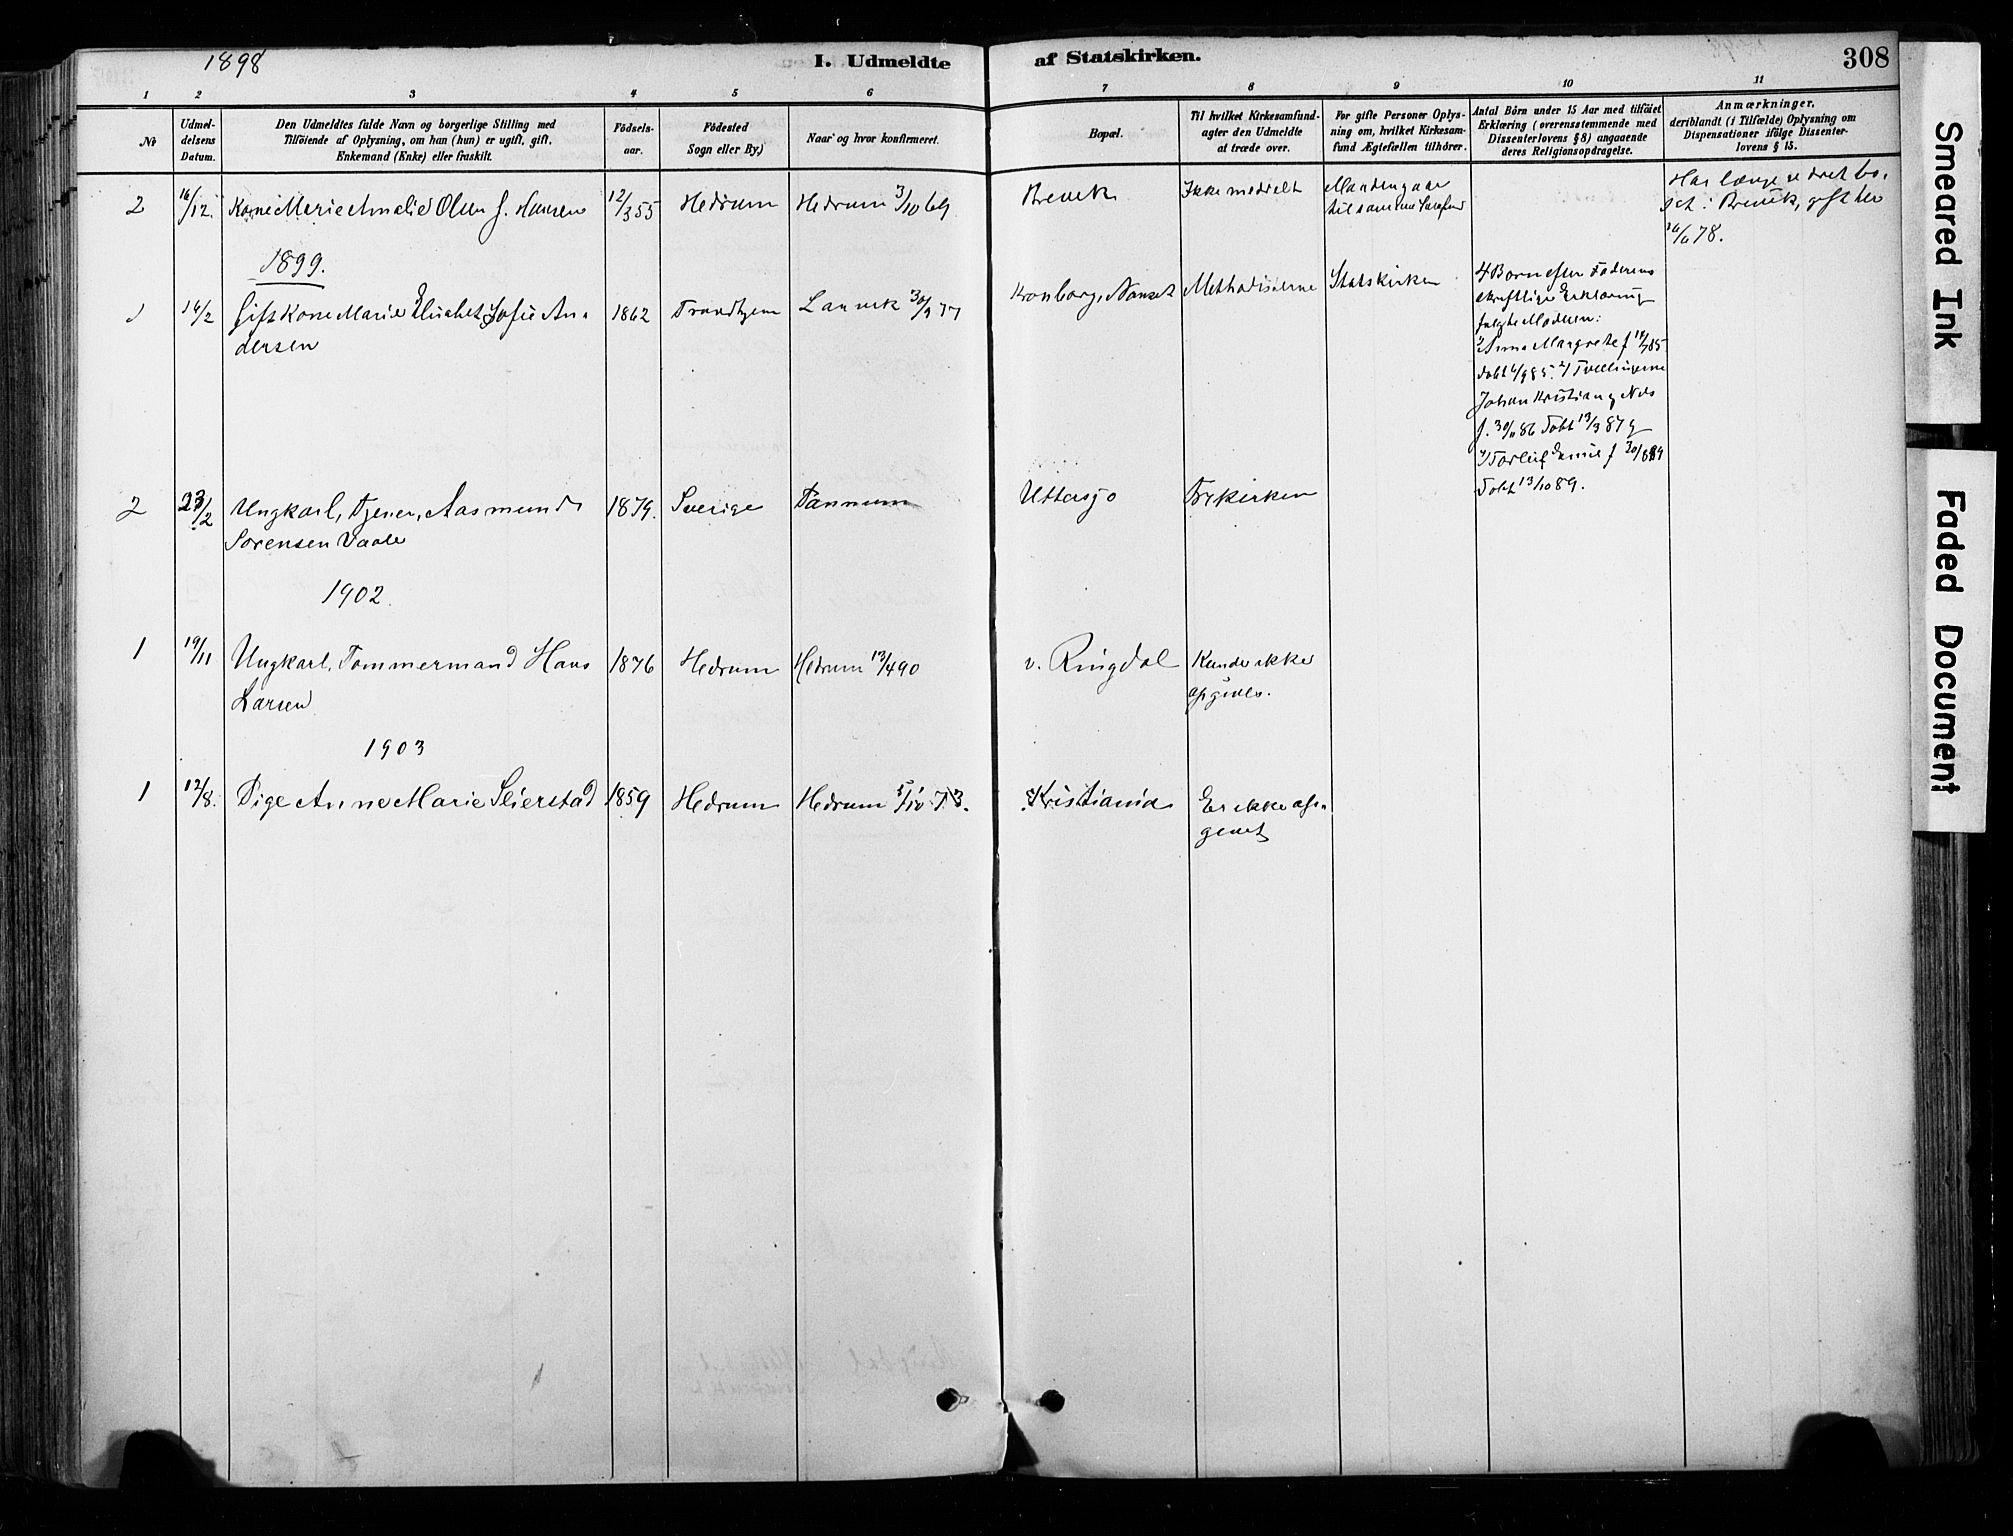 1898
I. Udmeldte af Statskirken.
308
1 2 3 4 5 6 7 8 9 10 11
No
Udmel-
delsens
Datum.
Den Udmeldtes fulde Navn og borgerlige Stilling med
Tilföiende af Oplysning, om han (hun) er ugift, gift,
Enkemand (Enke) eller fraskilt.
Födsels-
aar.
Födested
Sogn eller By,)
Naar og hvor konfirmeret.
Bopæl.
Til hvilket Kirkesamfund-
agter den Udmeldte
at træde over.
For gifte Personer Oplys-
ning om, hvilket Kirkesam-
fund Ægtefællen tilhörer.
Antal Börn under 15 Aar med tilföiet
Erklæring (overensstemmende med
Dissenterlovens § 8) angaaende
deres Religionsopdragelse.
Anmærkninger,
deriblandt (i Tilfælde) Oplysning om
Dispensationer ifölge Dissenter-
lovens § 15.
2 16/12. Kone Marie Amalie Olsen f. Hansen 12/3 55 Hedrum Hedrum 3/10 69 Brevik Ikke meddelt
Manden gaar
til samme
Har længe været bo-
sat i Brevik, gift der
78.
1899.
1 14/2 Gift Kone Marie Elisabet Sofie An-
dersen
1862 Trondhjem Laurvik 30/9 77 Kronborg, Nanset Methodisterne Statskirken
4 Børn efter Faderens
skriftlige Erklæring
følgte Moderen:
Anna Margrethe f 85
døbt 6/9 85. 2/ Tvillingerne
Johan Kristian og Nils
f. 30/11 86 Døbt 13/3 87 og
Torleif f 30/8 89
Døbt 13/10 89.
2 23/2 Ungkarl, Tjener, Aasmund
Sørensen Vaale
1879. Sverige Tannum Uttersjø Frikirken
1902.
1 19/11 Ungkarl, Tømmermand Hans
Larsen
1876 Hedrum Hedrum 13/4 90 v. Ringdal Kunde ikke
opgives.
1903
1 12/8. Pige Anne Marie Seierstad 1859 Hedrum Hedrum 5/10 73. Kristiania Er ikke op-
givet
Smeared Ink
Faded Document